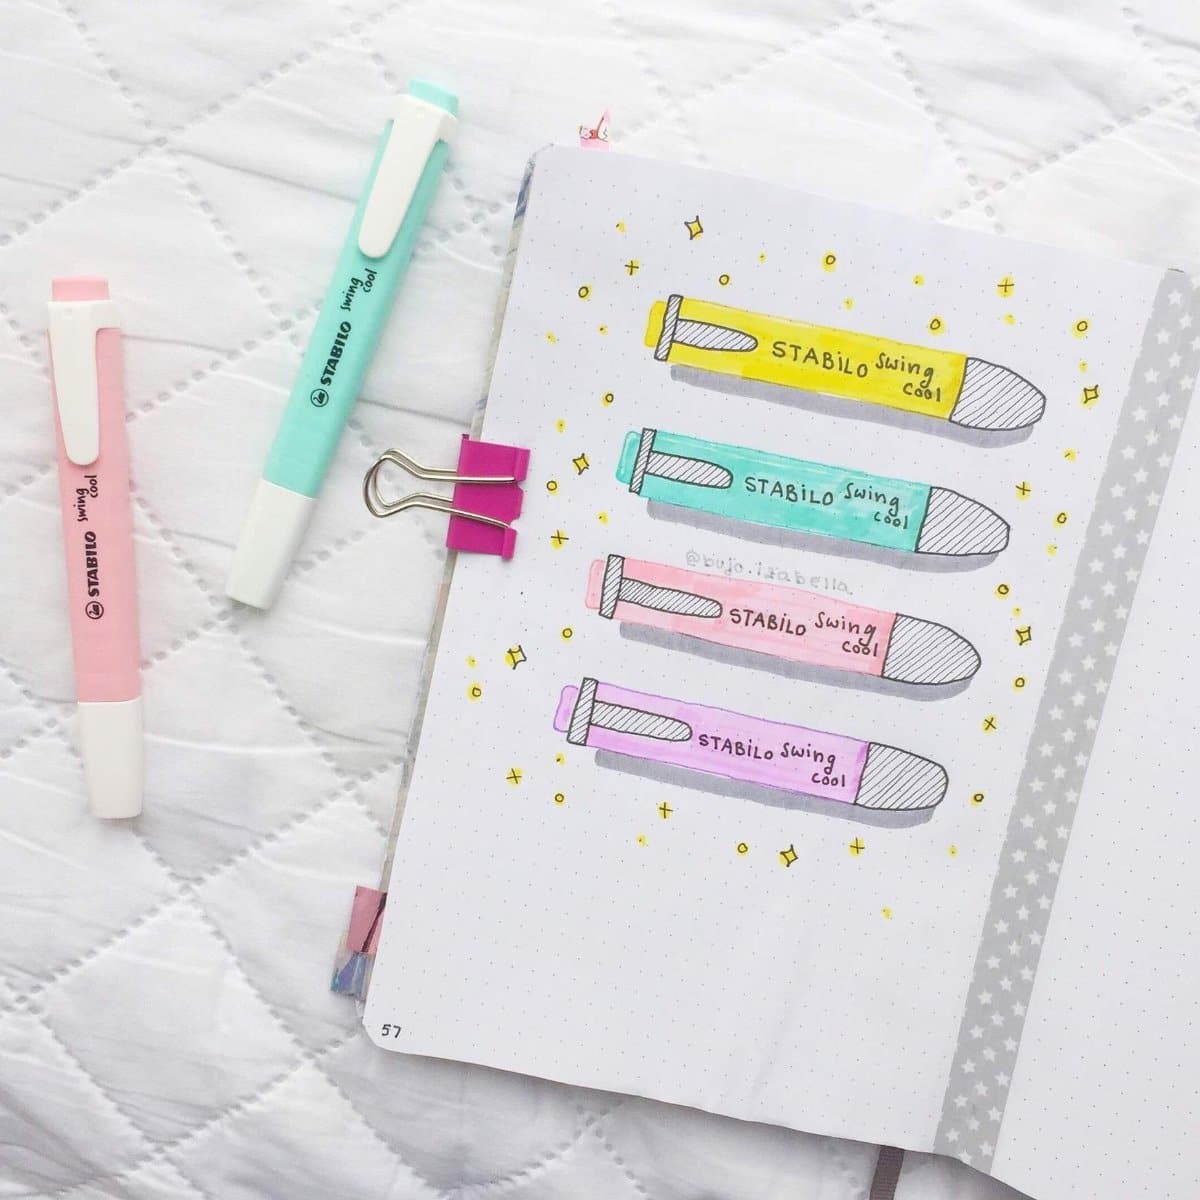 STABILO swing
cool
STABILO swing
cool
STABiLO Swing
cool
STABiLO Swing
cool
@bujo.izabella
STABiLO Swing
cool
STABiLO Swing
cool
57